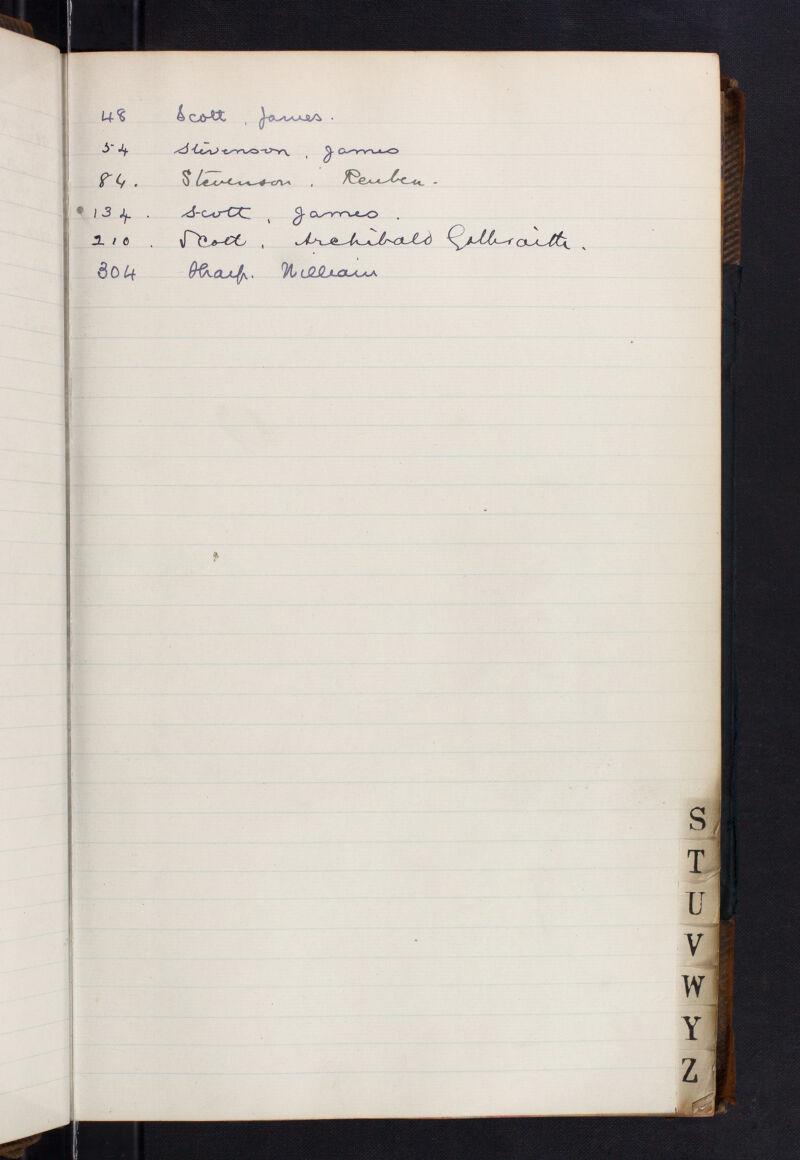 48 Scott, James.
54 Stevenson, James
84. Stevenson, Reuben.
134. Scott, James.
210. Scott, Archibald Galbraith.
304 Sharp. William
S
T
U
V
W
Y
Z